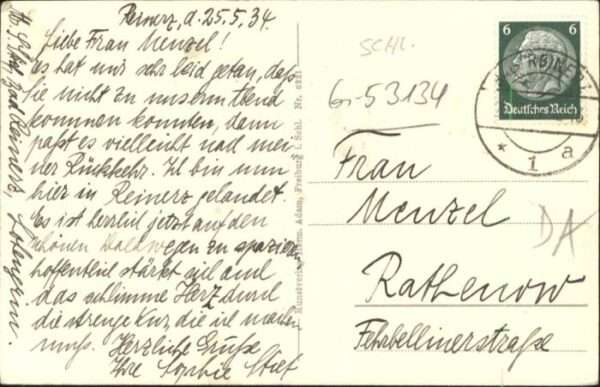 Reinerz, d. 25.5.34.
Liebe Frau Menzel!
Es hat mir sehr leid getan, daß
Sie nicht zu unserm Abend
kommen konnten, dann
paßt es vielleicht nach mei-
ner Rückkehr. Ich bin nun
hier in Reinerz gelandet.
Es ist herrlich jetzt auf den
schönen Waldwegen zu spazieren
hoffentlich stärkt sich auch
das schlimme Herz durch
die strenge Kur, die ich machen
muß. Herzliche Grüße
Ihre Sophie
Bad Reinerz,
Kunstverlag Herm. Adam, Freiburg i. Schl. Nr.
6
6
Deutsches Reich
* 1 a
SCHL.
Gr-53134
Frau
Menzel
DA
Rathenow
Fehrbellinerstraße